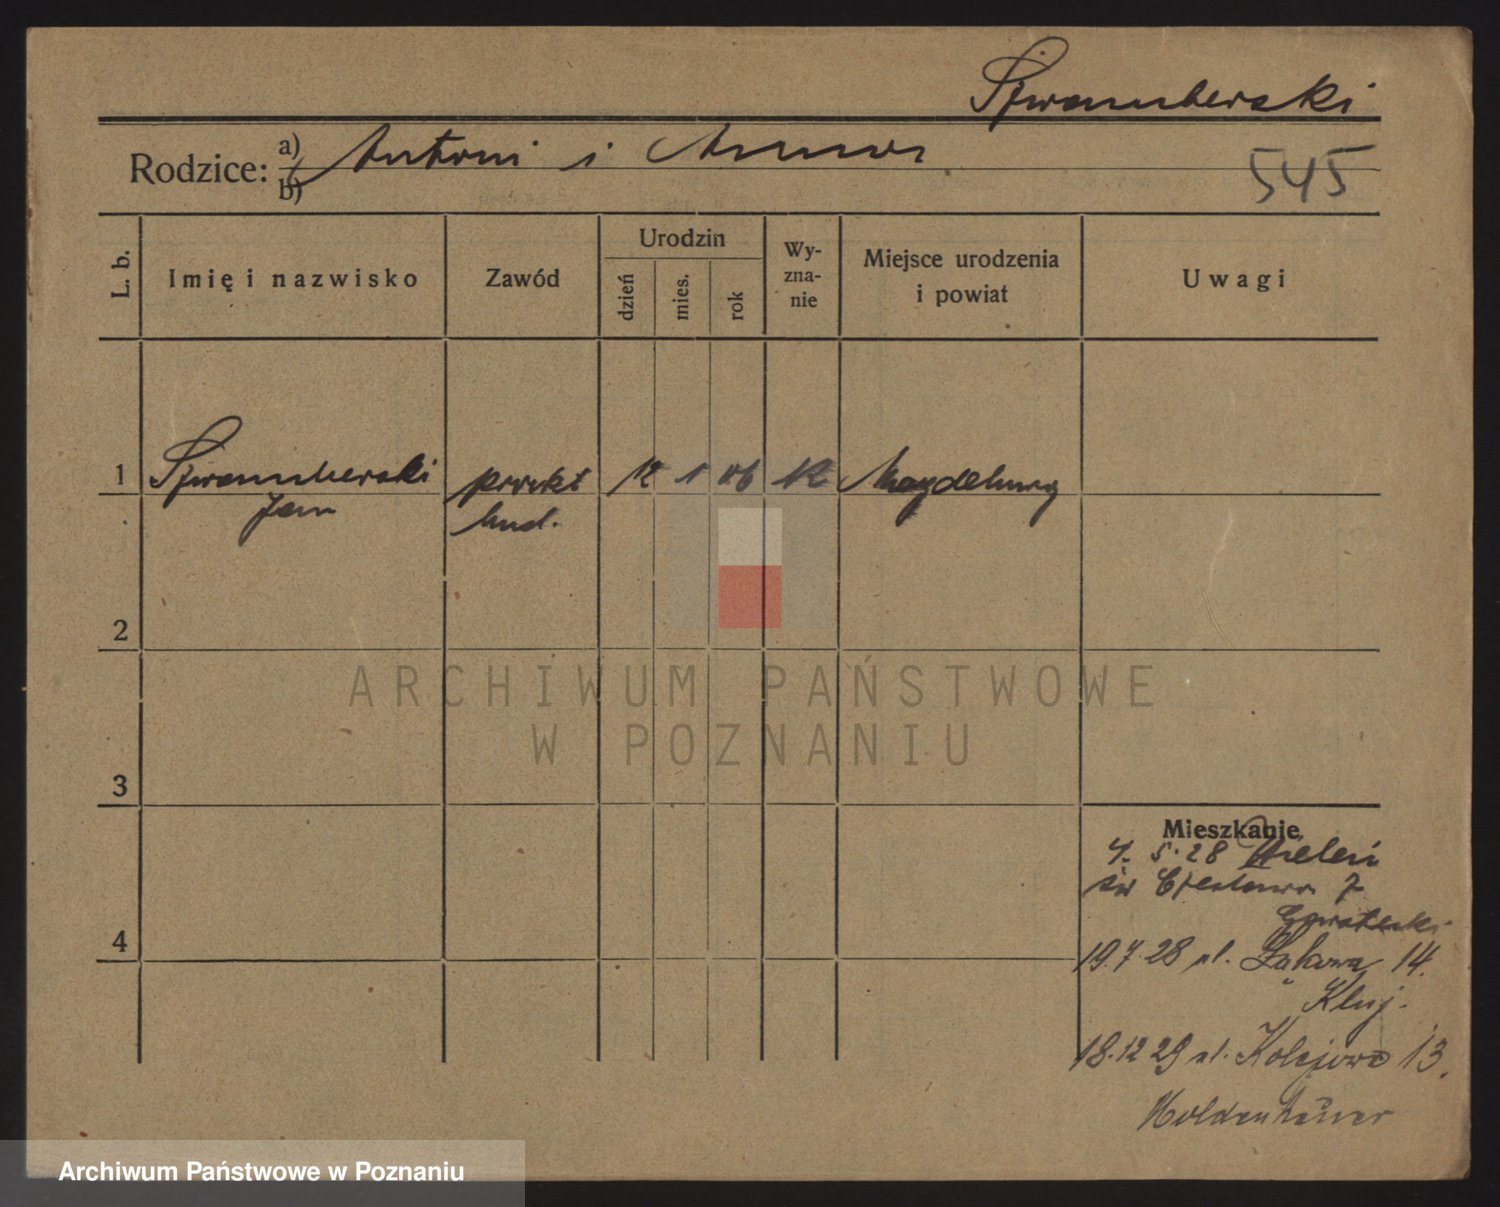 Szwamberski
Rodzice: a) Antoni i Anna
b)
545
L. b.
Imię i nazwisko
Zawód
Urodzin
dzień
mies.
rok
Wy-
zna-
nie
Miejsce urodzenia
i powiat
Uwagi
1 Szwamberski 12 1 06 Magdeburg
Jan bud.
2
ARCHIWUM PAŃSTWOWE
W POZNANIU
3
Mieszkanie
4. 5. 28
św Czesława 7
4
19.7.28 ul. Łąkowa 14.
Kluj.
18.12 29 ul. Kolejowa 13.
Moldenhauer
Archiwum Państwowe w Poznaniu